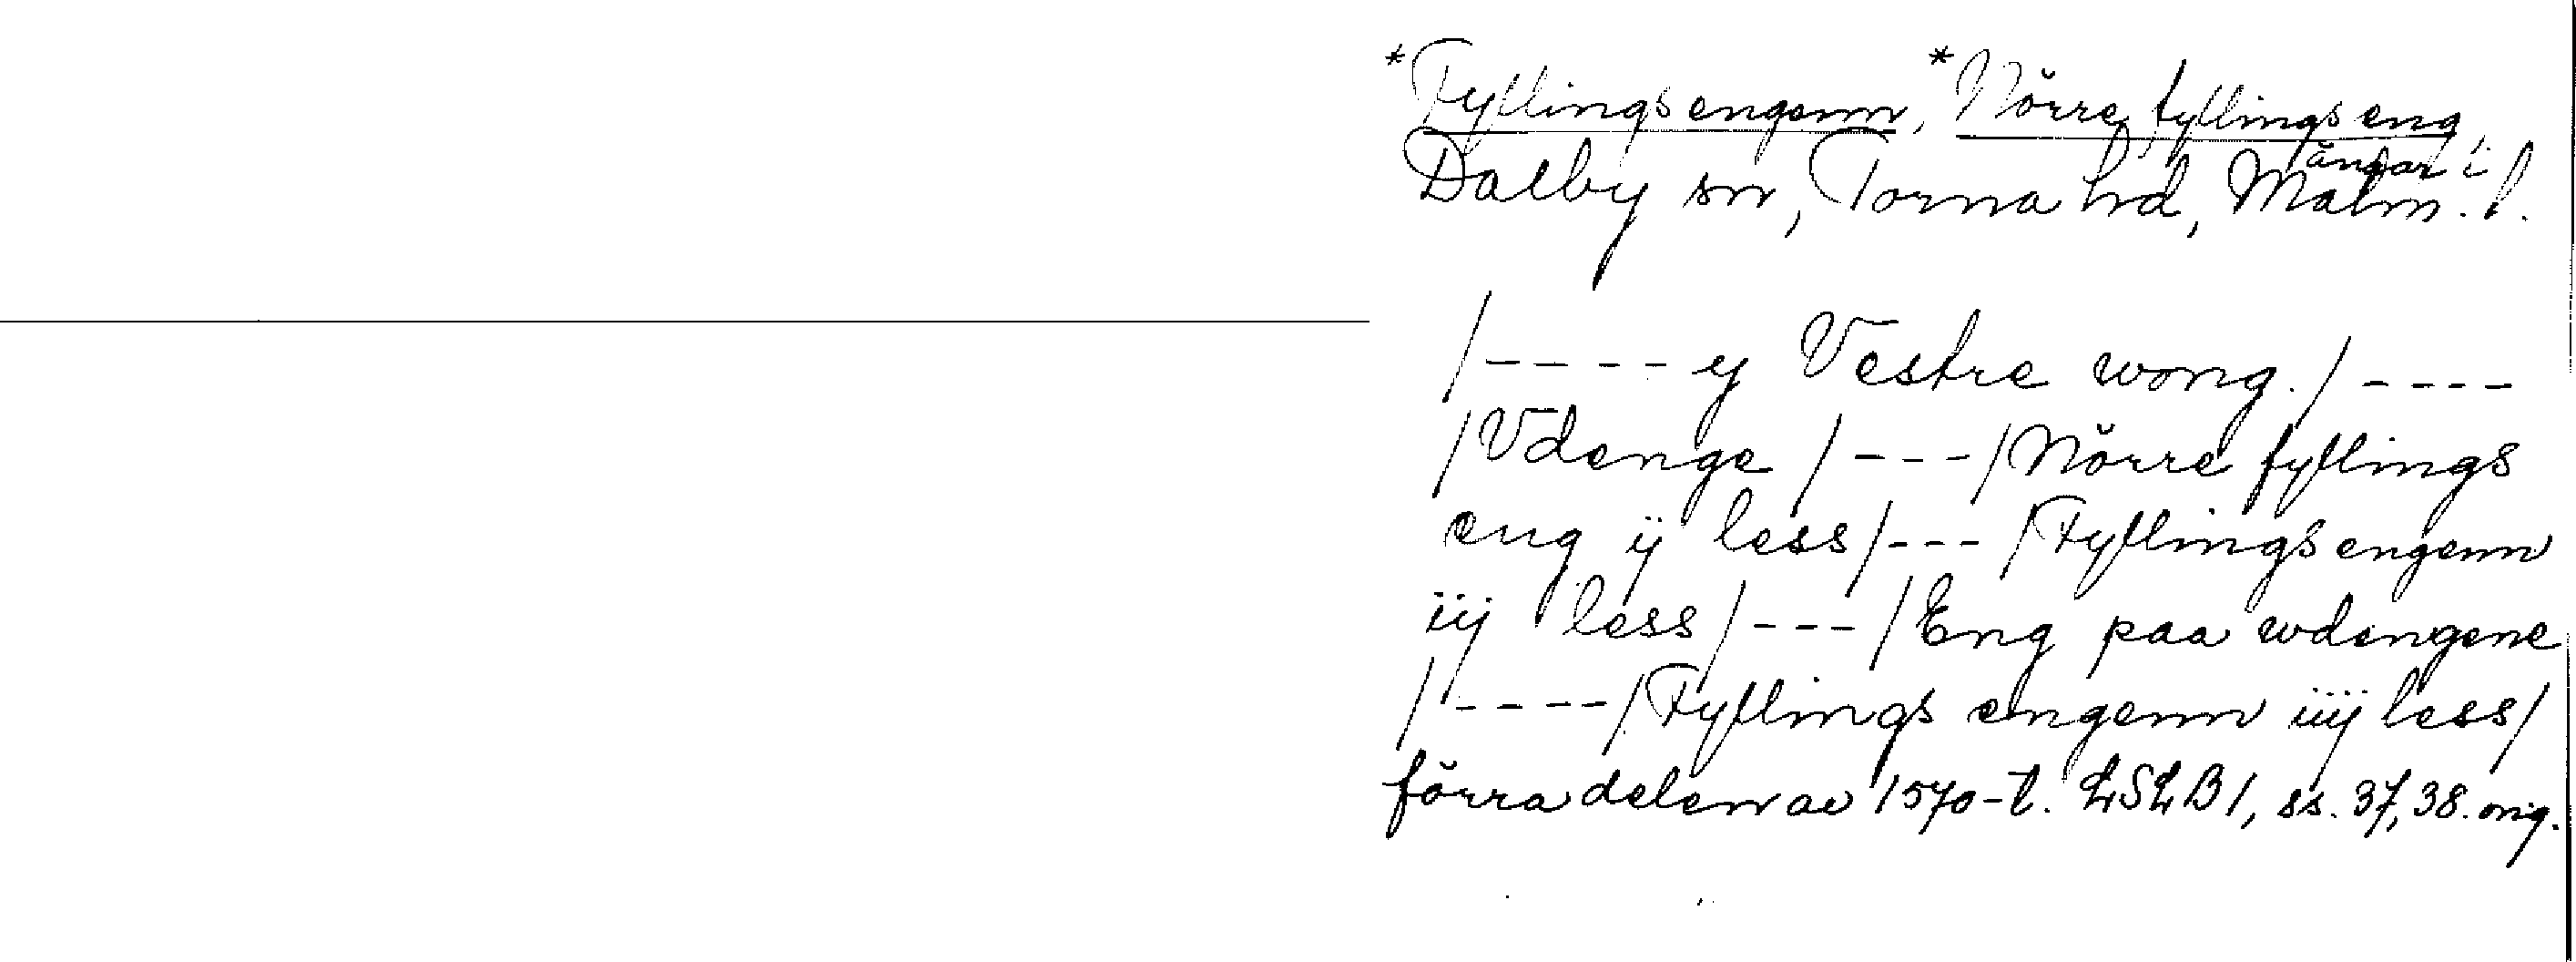 *Fyllingsengenn, *Nörre fyllings eng,
ängar i
Dalby sn, Torna hd, Malm. l.
/---- y Vestre wong. / ----
/ Vdenge / --- / Nörre fyllings
eng ij less / --- / Fyllingsengenn
iij less / --- / Eng paa wdengene
/ ---- / Fyllings engenn iiij less /
förra delen av 1570-t. LSLB 1, ss. 37, 38. orig.